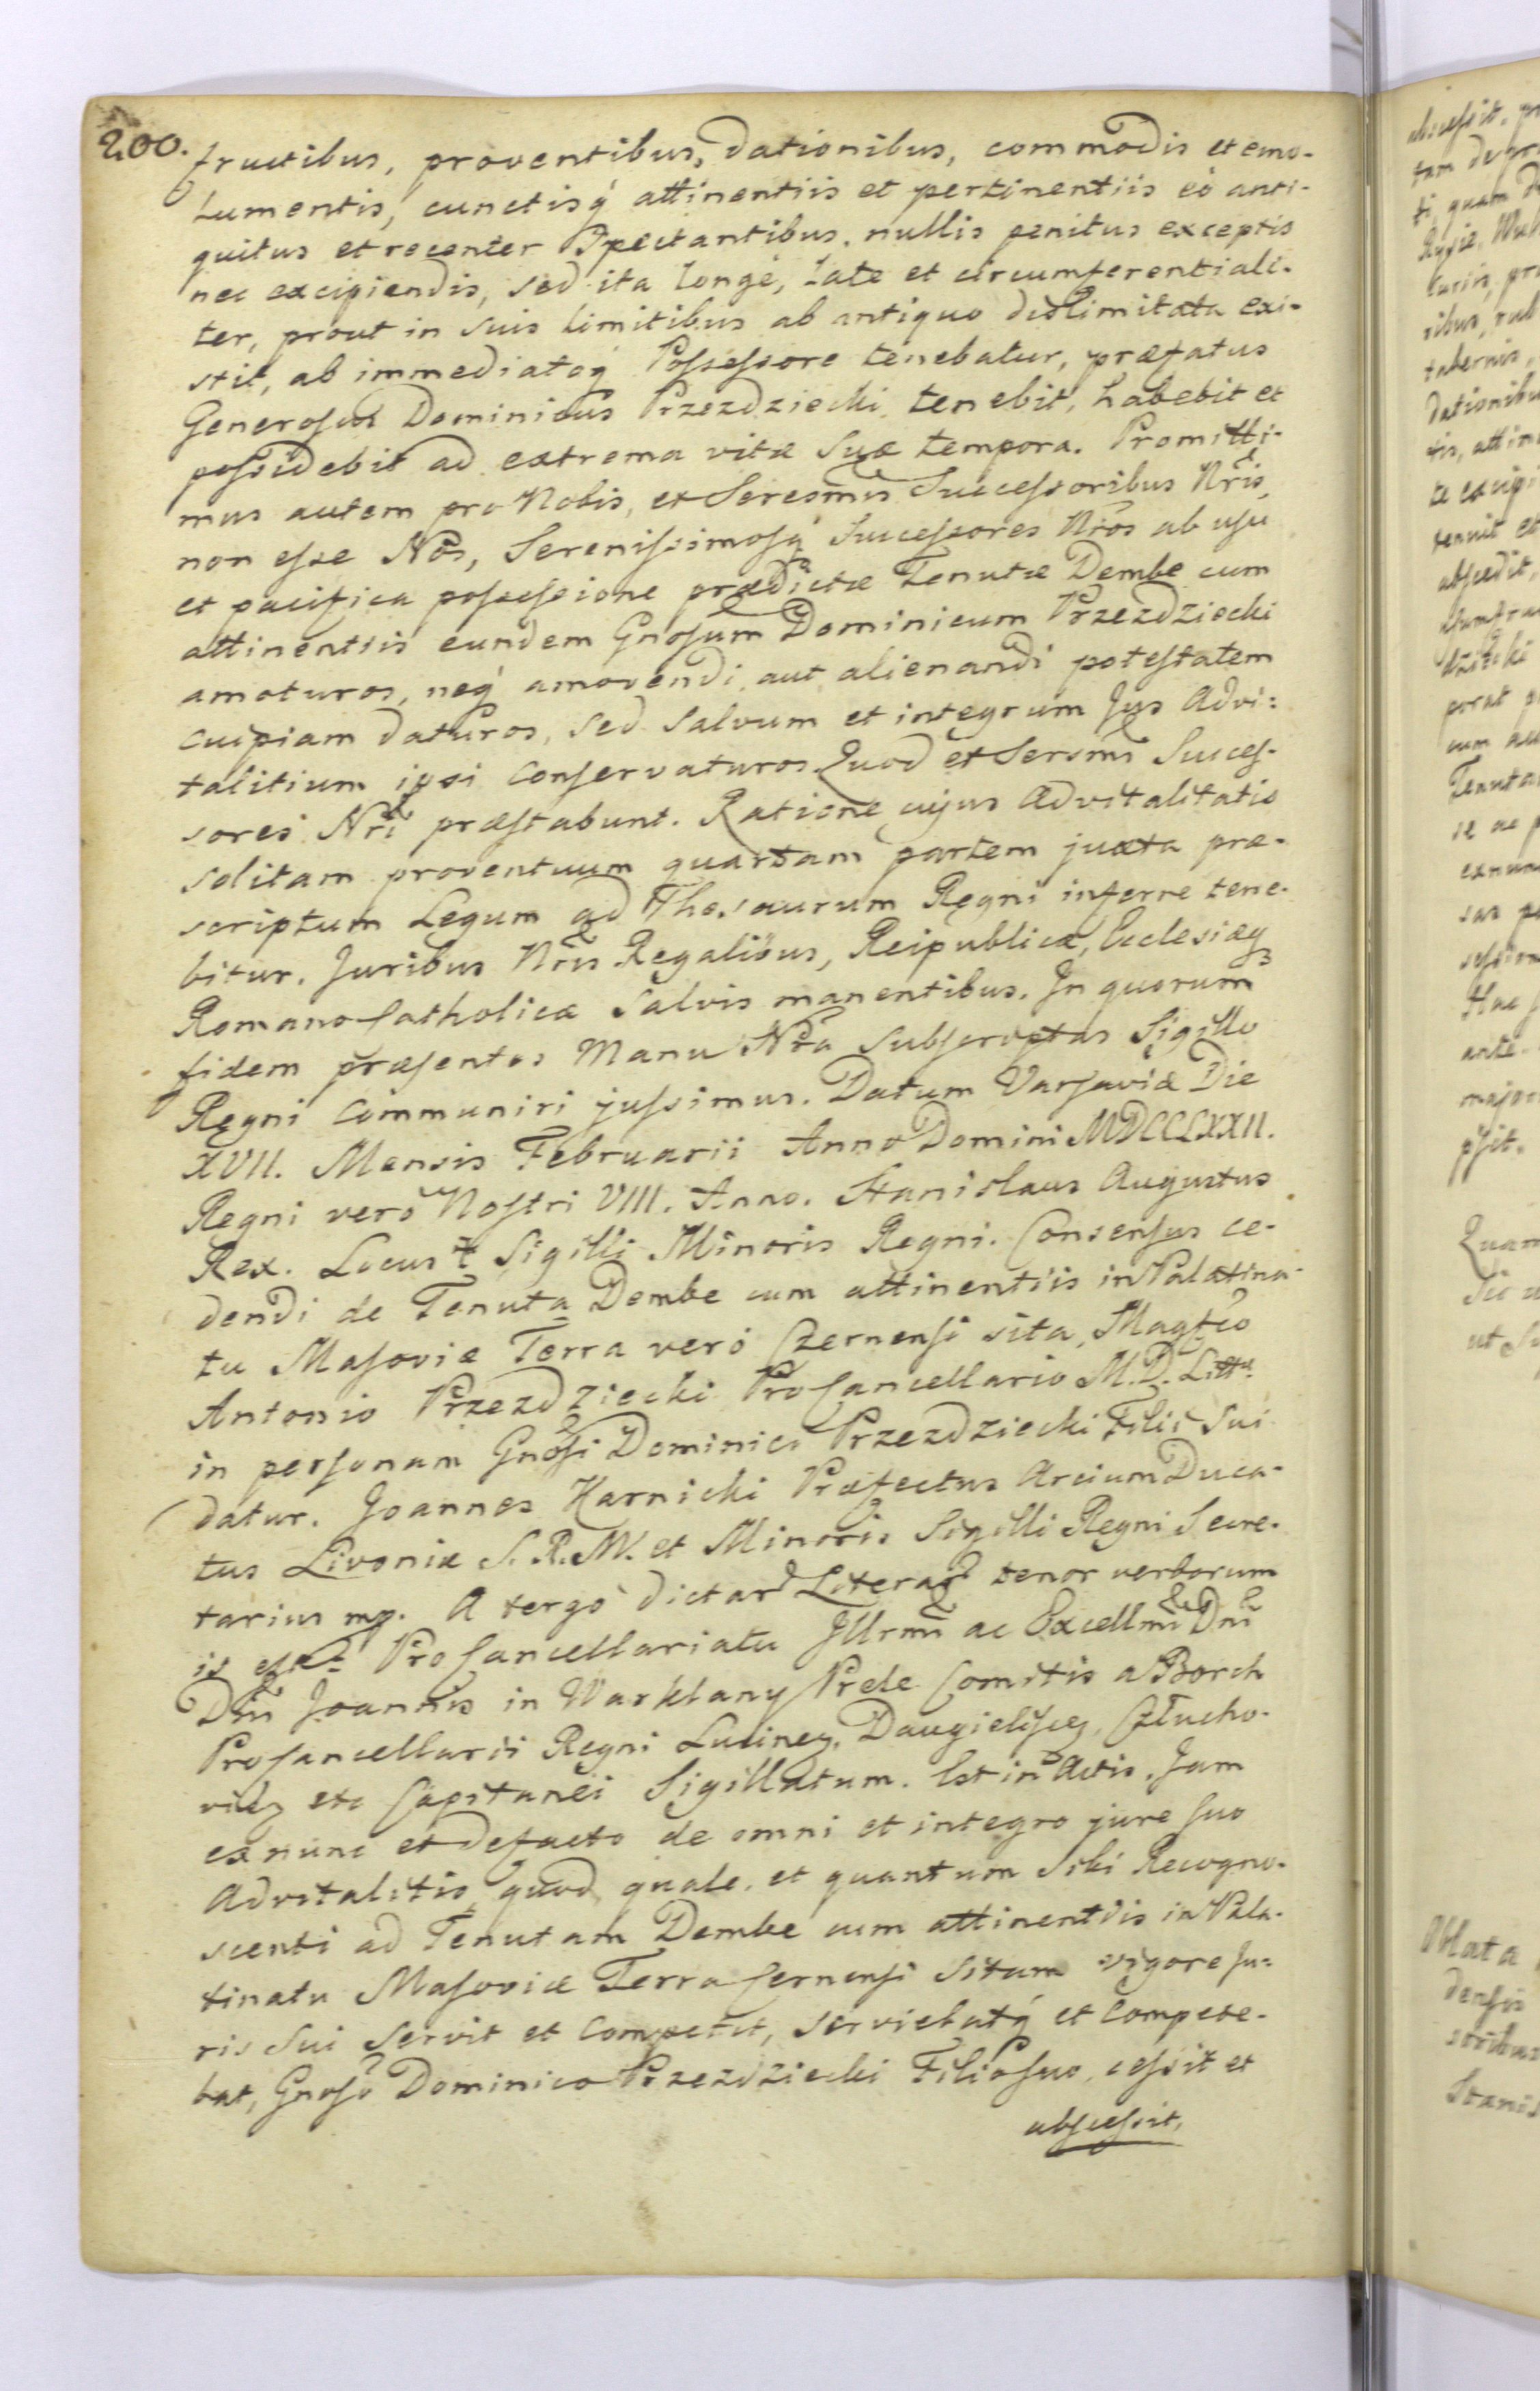 200.
fructibus, proventibus, dationibus, commodis et emo-
lumentis, cunctisq́ attinentiis et pertinentiis eò anti-
quitus et recenter Spectantibus, nullis penitus exceptis
nec excipiendis, sed ita longè, late et circumferentiali-
ter, prout in suis limitibus ab antiquo dislimitata exi-
stit, ab immediatoq́ Possessore tenebatur, præfatus
Generosus Dominicus Przezdziecki tenebit, habebit et
possidebit ad extrema vitæ suæ tempora. Promitti-
mus autem pro Nobis, et Seresmis Successoribus Nris,
non esse Nos, Serenissimosq́ Successores Nros ab usu
et pacifica possessione prædictæ Tenutæ Dembe cum
attinentiis eundem Gnosum Dominicum Przezdziecki
amoturos, neq́ amovendi aut alienandi potestatem
cuipiam daturos, sed salvum et integrum Jus Advi=
talitium ipsi conservaturos. Quod et Sersmi Succes-
sores Nri præstabunt. Ratione cujus Advitalitatis
solitam proventuum quartam partem juxta præ-
scriptum Legum ad Thesaurum Regni inferre tene-
bitur. Juribus Nris Regalibus, Reipublicæ, Ecclesiæq
Romano Catholicæ salvis manentibus. In quorum
fidem præsentes Manu Nra subscriptas Sigillo
Regni communiri jussimus. Datum Varsaviæ Die
XVII. Mensis Februarii Anno Domini MDCCLXXII.
Regni verò Nostri VIII. Anno. Stanislaus Augustus
Rex. Locus Sigilli Minoris Regni. Consensus ce-
dendi de Tenuta Dembe cum attinentiis in Palatina-
tu Masoviæ Terra verò Czernensi sita, Magfco
Antonio Przezdziecki Pro Cancellario M. D. Litt.
in personam Gnosi Dominici Przezdziecki Filii Sui
datur. Joannes Karnicki Præfectus Arcium Duca-
tus Livoniæ S. R. M. et Minoris Sigilli Regni Secre-
tarius mp. A tergo dictar Literar tenor verborum
is est Pro Cancellariatu Illrmi ac Excellmi Dni
Dni Joannis in Warklany Prele Comitis a Borch
Pro Cancellarii Regni Lucinen, Daugielisen, Człucho-
vien etc Capitanei Sigillatum. Est in Actis. Jam
ex nunc et de facto de omni et integro jure suo
Advitalitio quod, quale, et quantum sibi Recogno-
scenti ad Tenutam Dembe cum attinentiis in Pala-
tinatu Masoviæ Terra Cernensi sitam vigore Ju=
ris sui servit et competit, serviebatq́ et compete-
bat, Gnoso Dominico Przezdziecki Filio suo, cessit et
abscessit,